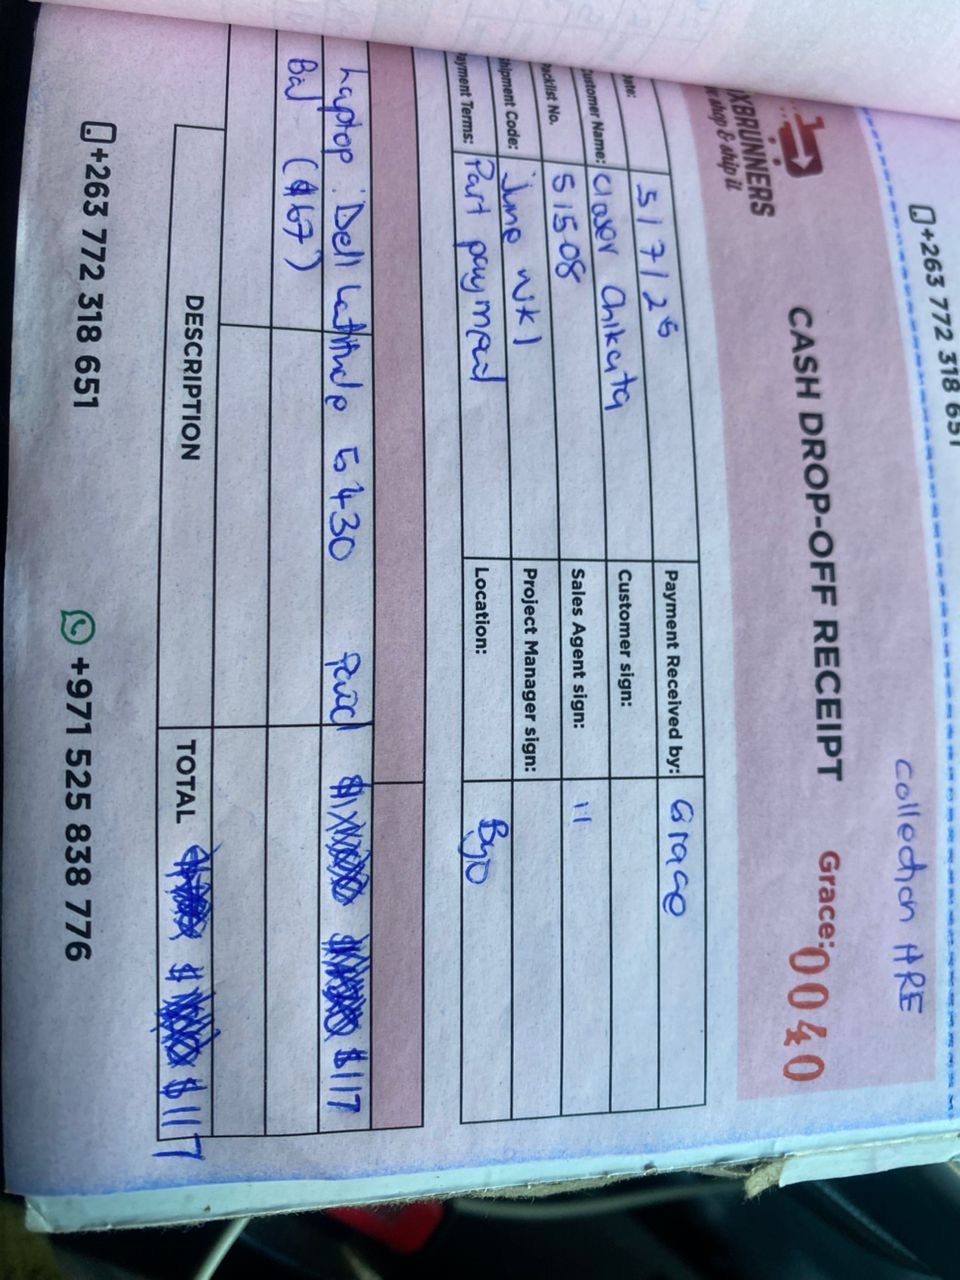 +263 772 318 651
collection HRE
XBRUNNERS
shop & ship it
CASH DROP-OFF RECEIPT
Grace: 0040
ate: 5/7/25 Payment Received by: Grace
ustomer Name: Claver Chikuta Customer sign:
acklist No. 51508 Sales Agent sign: 11
hipment Code: June wk1 Project Manager sign:
ayment Terms: Part payment Location: Byo
Laptop: Dell Latitude 5430 paid $117
Bal ($67)
DESCRIPTION TOTAL $117
+263 772 318 651 +971 525 838 776